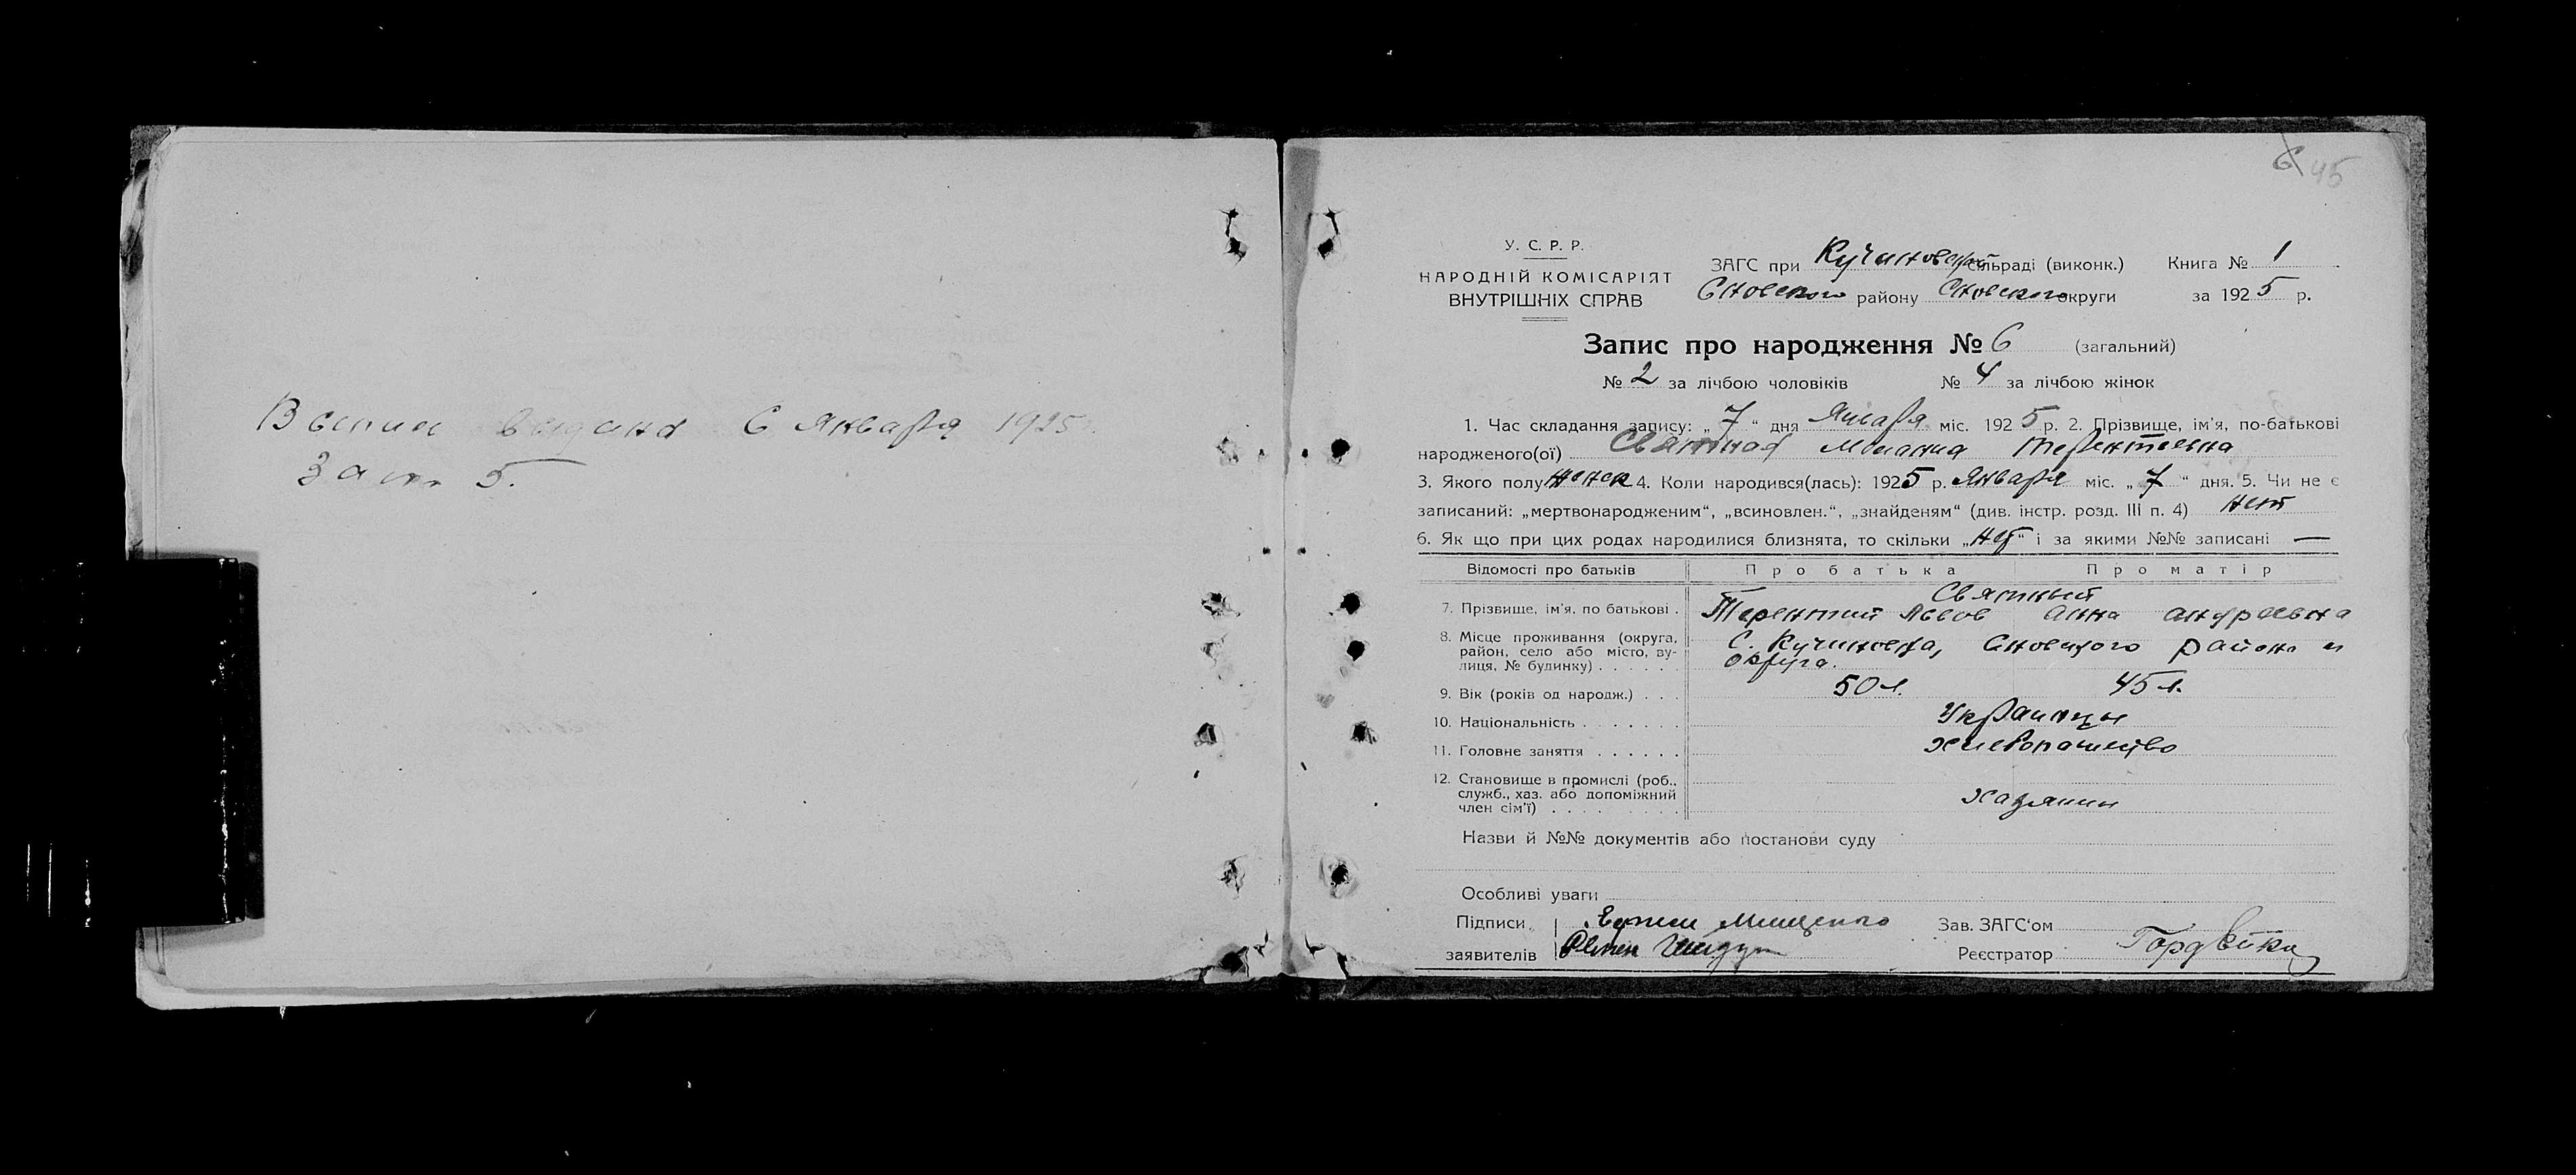 Выпись выдана 6 Января 1925
За № 5.
6 45
У. С. Р. Р.
НАРОДНІЙ КОМІСАРІЯТ
ВНУТРІШНІХ СПРАВ
ЗАГС при Кучиновской сільраді (виконк.) Книга № 1
Сновского району Сновского округи за 1925 р.
Запис про народження № 6 (загальний)
№ 2 за лічбою чоловіків № 4 за лічбою жінок
1. Час складання запису: „7“ дня Января міс. 1925 р. 2. Прізвище, ім'я, по-батькові
народженого(ої) Святная Мелания Терентьевна
3. Якого полу женск 4. Коли народився(лась): 1925 р. Января міс. „7“ дня. 5. Чи не є
записаний: „мертвонародженим“, „всиновлен.“, „знайденям“ (див. інстр. розд. III п. 4) нет
6. Як що при цих родах народилися близнята, то скільки „нет“ і за якими №№ записані —
Відомості про батьків Про батька Про матір
Святный
7. Прізвище, ім'я, по батькові . Терентий Львов Анна Андреевна
8. Місце проживання (округа, С. Кучиновка, Сновского района и
район, село або місто, ву-
лиця, № будинку) . . . . . округа.
9. Вік (років од народж.) . . . 50 л. 45 л.
10. Національність . . . . . . . Украинцы
11. Головне заняття . . . . . . хлебопашество
12. Становище в промислі (роб.,
служб., хаз. або допоміжний
член сім'ї) . . . . . . . . . хазяини
Назви й №№ документів або постанови суду
Особливі уваги
Підписи Мищенко Зав. ЗАГС'ом
заявителів Реєстратор Гордейко